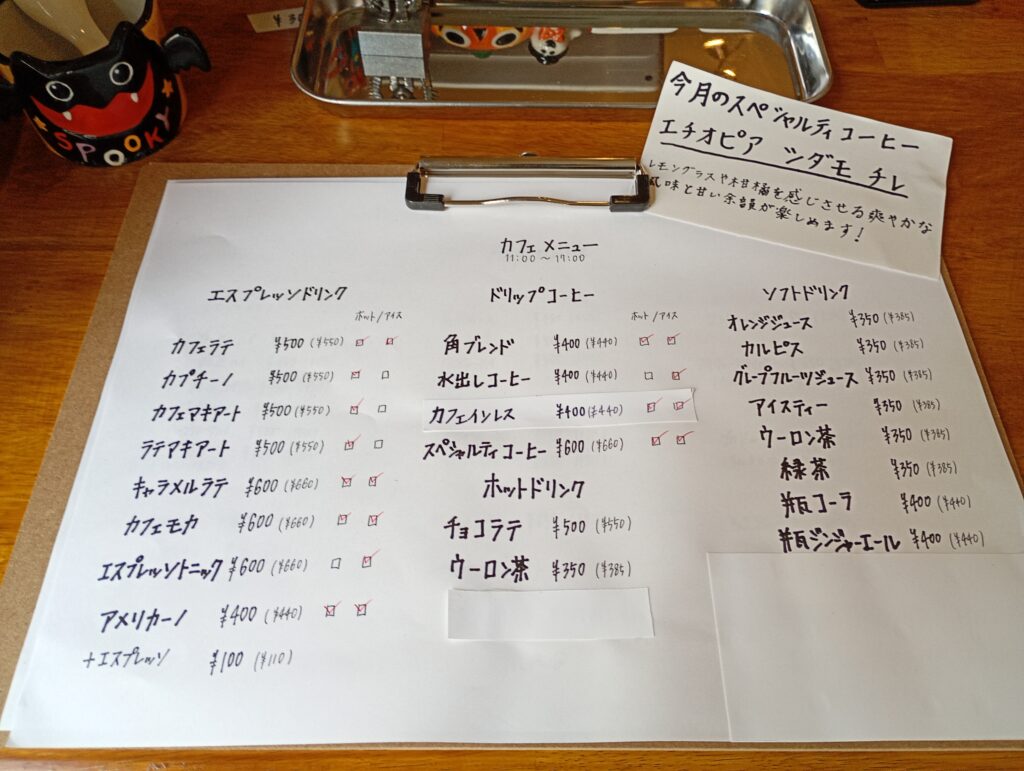 ¥30
SPOOKY
今月のスペシャルティコーヒー
エチオピア シダモ チレ
レモングラスや柑橘を感じさせる爽やかな
風味と甘い余韻が楽しめます!
カフェ メニュー
11:00～17:00
エスプレッソドリンク
ホット/アイス
カフェラテ ¥500 (¥550) ☑ ☑
カプチーノ ¥500 (¥550) ☑ □
カフェマキアート ¥500 (¥550) ☑ □
ラテマキアート ¥500 (¥550) ☑ □
キャラメルラテ ¥600 (¥660) ☑ ☑
カフェモカ ¥600 (¥660) ☑ ☑
エスプレッソトニック ¥600 (¥660) □ ☑
アメリカーノ ¥400 (¥440) ☑ ☑
+エスプレッソ ¥100 (¥110)
ドリップコーヒー
ホット/アイス
角ブレンド ¥400 (¥440) ☑ ☑
水出しコーヒー ¥400 (¥440) □ ☑
カフェインレス ¥400 (¥440) ☑ ☑
スペシャルティコーヒー ¥600 (¥660) ☑ ☑
ホットドリンク
チョコラテ ¥500 (¥550)
ウーロン茶 ¥350 (¥385)
ソフトドリンク
オレンジジュース ¥350 (¥385)
カルピス ¥350 (¥385)
グレープフルーツジュース ¥350 (¥385)
アイスティー ¥350 (¥385)
ウーロン茶 ¥350 (¥385)
緑茶 ¥350 (¥385)
瓶コーラ ¥400 (¥440)
瓶ジンジャーエール ¥400 (¥440)